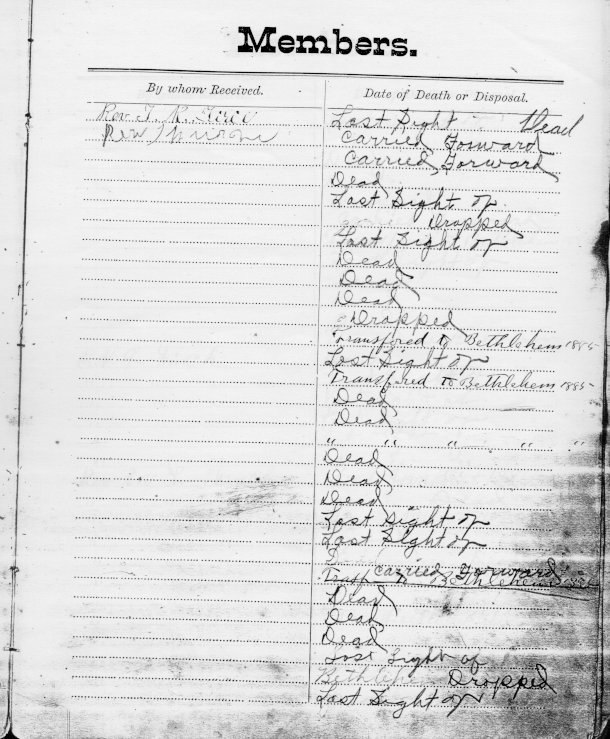 Members.
By whom Received. Date of Death or Disposal.
Rev. T. R. Lost Sight Dead
Rev Carried Forward
Carried Forward
Dead
Lost Sight of
Dropped
Lost Sight of
Dead
Dead
Dead
Dropped
Transfred to Bethlehem 1885
Lost Sight of
Transfred to Bethlehem 1885
Dead
Dead
" " " " "
Dead
Dead
Dead
Lost Sight of
Lost Sight of
Carried Forward
to Bethlehem
Dead
Dead
Dead
Lost Sight of
Dropped
Lost Sight of